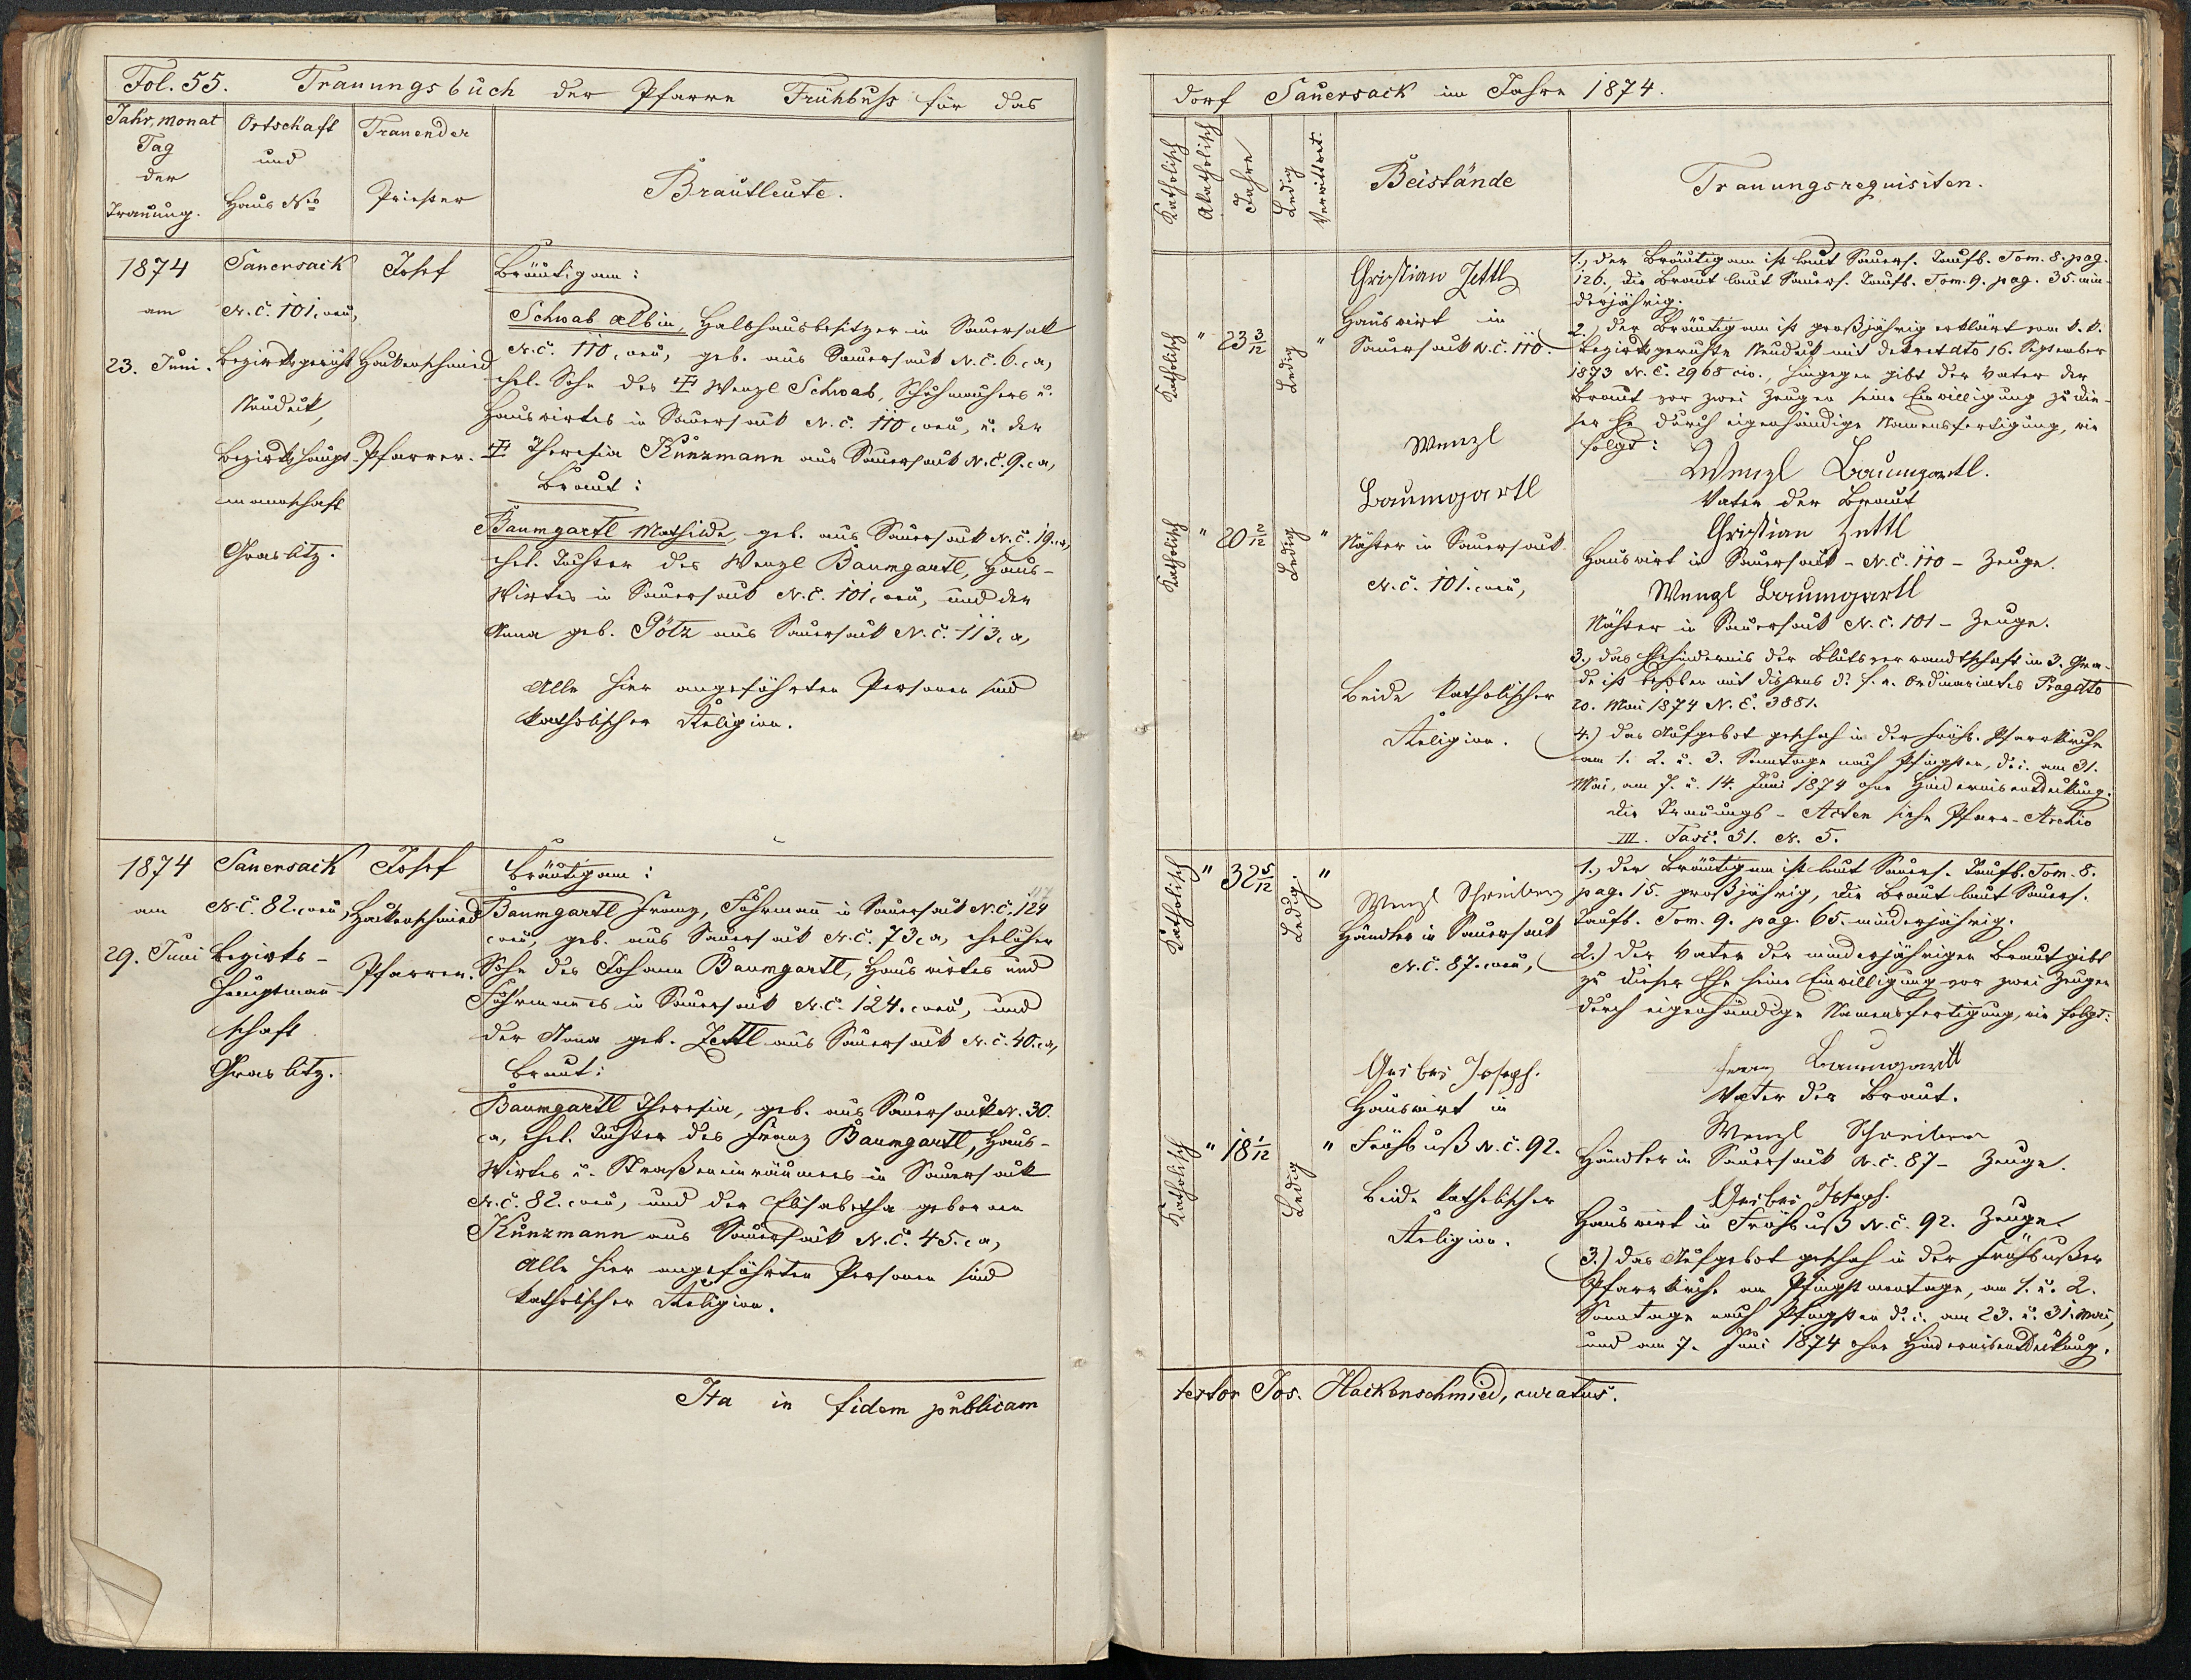 Fol. 55. Trauungsbuch der Pfarre Frühbuß für das
Jahr, Monat
Tag
der
Trauung.
Ortschaft
und
Haus Nro
Trauender
Priester
Brautleute.
1874
am
23. Juni.
Sauersack
N.C. 101. neu,
Bezirksgericht
Neudek,
Bezirkshaupt-
mannschaft
Graslitz.
Josef
Hackenschmied
Pfarrer.
Bräutigam:
Schwab Albin, Halbhausbesitzer in Sauersack
N.C. 110, neu, geb. aus Sauersack N.C. 6. a,
ehel. Sohn des Wenzl Schwab, Schuhmachers u.
Hauswirtes in Sauersack N.C. 110, neu, u. der
Theresia Kunzmann aus Sauersack N.C. 9. a,
Braut:
Baumgartl Mathilde, geb. aus Sauersack N.C. 19. a,
ehel. Tochter des Wenzl Baumgartl, Haus-
wirtes in Sauersack N.C. 101, neu, und der
Anna geb. Götz aus Sauersack N.C. 113. a,
Alle hier angeführten Personen sind
katholischer Religion.
1874
am
29. Juni
Sauersack
N.C. 82. neu,
Bezirks-
hauptmann-
schaft
Graslitz.
Josef
Hackenschmied
Pfarrer.
Bräutigam:
Baumgartl Franz, Fuhrmann in Sauersack N.C. 124
neu, geb. aus Sauersack N.C. 73. a, ehelicher
Sohn des Johann Baumgartl, Hauswirtes und
Fuhrmannes in Sauersack N.C. 124. neu, und
der Anna geb. Zettl aus Sauersack N.C. 40. a,
Braut:
Baumgartl Theresia, geb. aus Sauersack N. 30.
a, ehel. Tochter des Franz Baumgartl, Haus-
wirtes u. Straßeneinräumers in Sauersack
N.C. 82. neu, und der Elisabetha geborene
Kunzmann aus Sauersack N.C. 45. a,
Alle hier angeführten Personen sind
katholischer Religion.
Ita in fidem publicam
dorf Sauersack im Jahre 1874.
Katholisch
Akatholisch
Jahre
Ledig
Verwittwet.
Beistände
Trauungsrequisiten.
Katholisch " 23 3/12 Ledig "
Christian Zettl
Hauswirt in
Sauersack N.C. 110.
Wenzl
Baumgartl
Katholisch " 20 2/12 Ledig "
in Sauersack
N.C. 101. neu,
Beide katholischer
Religion.
1., Der Bräutigam ist laut Sauers. Taufb. Tom. 8. pag.
126., die Braut laut Sauers. Taufb. Tom. 9. pag. 35. min-
derjährig.
2., Der Bräutigam ist großjährig erklärt vom k. k.
Bezirksgerichte Neudek mit Dekret dto 16. September
1873 N.E. 2968 civ., hingegen gibt der Vater der
Braut vor zwei Zeugen seine Einwilligung zu die-
ser Ehe durch eigenhändige Namensfertigung, wie
folgt:
Wenzl Baumgartl.
Vater der Braut
Christian Zettl
Hauswirt in Sauersack - N.C. 110 - Zeuge.
Wenzl Baumgartl
in Sauersack N.C. 101 - Zeuge.
3., Das Ehehindernis der Blutsverwandtschaft im 3. Gra-
de ist behoben mit Dispens d. f. e. Ordinariates Prag dto
20. Mai 1874 N.E. 3881.
4.) Das Aufgebot geschah in der Frühb. Pfarrkirche
am 1. 2. u. 3. Sonntage nach Pfingsten, d. i. am 31.
Mai, am 7. u. 14. Juni 1874 ohne Hindernisentdeckung.
Die Trauungs-Acten siehe Pfarr-Archiv
III. Fasc. 51. N. 5.
Katholisch " 32 5/12 Ledig. "
Wenzl Schreiber
Händler in Sauersack
N.C. 87. neu,
Joseph.
Hauswirt in
Katholisch " 18 1/12 Ledig " Frühbuß N.C. 92.
Beide katholischer
Religion.
1., Der Bräutigam ist laut Sauers. Taufb. Tom. 8.
pag. 15. großjährig, die Braut laut Sauers.
Taufb. Tom. 9. pag. 65. minderjährig.
2.) Der Vater der minderjährigen Braut gibt
zu dieser Ehe seine Einwilligung vor zwei Zeugen
durch eigenhändige Namensfertigung, wie folgt:
Franz Baumgartl
Vater der Braut.
Wenzl Schreiber
Händler in Sauersack N.C. 87 - Zeuge.
Joseph.
Hauswirt in Frühbuß N.C. 92. Zeuge.
3.) Das Aufgebot geschah in der Frühbußer
Pfarrkirche am Pfingstmontage, am 1. u. 2.
Sonntage nach Pfingsten d. i. am 23. u. 31. Mai,
und am 7. Juni 1874 ohne Hindernisentdeckung.
testor Jos. Hackenschmied, curatus.